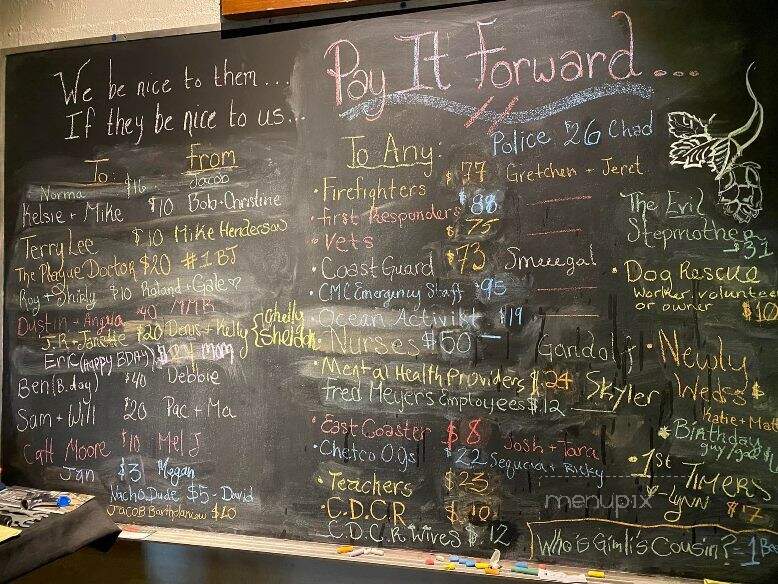 We be nice to them...
If they be nice to us...
To: From
Norma $16 Jacob
Kelsie + Mike $10 Bob + Christine
Terry Lee $10 Mike Henderson
The Plague Doctor $20 #1 BJ
Roy + Shirly $10 Roland + Gale ♡
Dustin + Angela $40
J.R. + Janette $20 Denis + Kelly { Shelly
Sheldon
Eric (Happy BDAY) mom
Ben (B.day) $40 Debbie
Sam + Will $20 Pac + Ma
Catt Moore $10 Mel J
Jan $3 Megan
Nacho Dude $5 - David
JACOB Bartholamew $20
Pay It Forward...
Police 26 Chad
To Any:
• Firefighters $77 Gretchen + Jeret
• First Responders $88
• Vets $75
• Coast Guard $73 Smeeegal
• CMC Emergency Staff $95
• Ocean Activikt $19
• Nurses $50 Gandolf
• Mental Health Providers $24 Skyler
Fred Meyers Employees $12
• East Coaster $8 Josh + Tara
• Chetco Ogs $22 Sequoia + Ricky
• Teachers $23
• C.D.C.R $10
C.D.C.R Wives $12
The Evil
Stepmother
$31
• Dog Rescue
worker, volunteer
or owner $10
• Newly
Weds $
Katie + Matt
* Birthday
guy/gal $
• 1st TIMERS
Y-Lynn $17
Who's Gimli's Cousin? = 1 Be
menupix